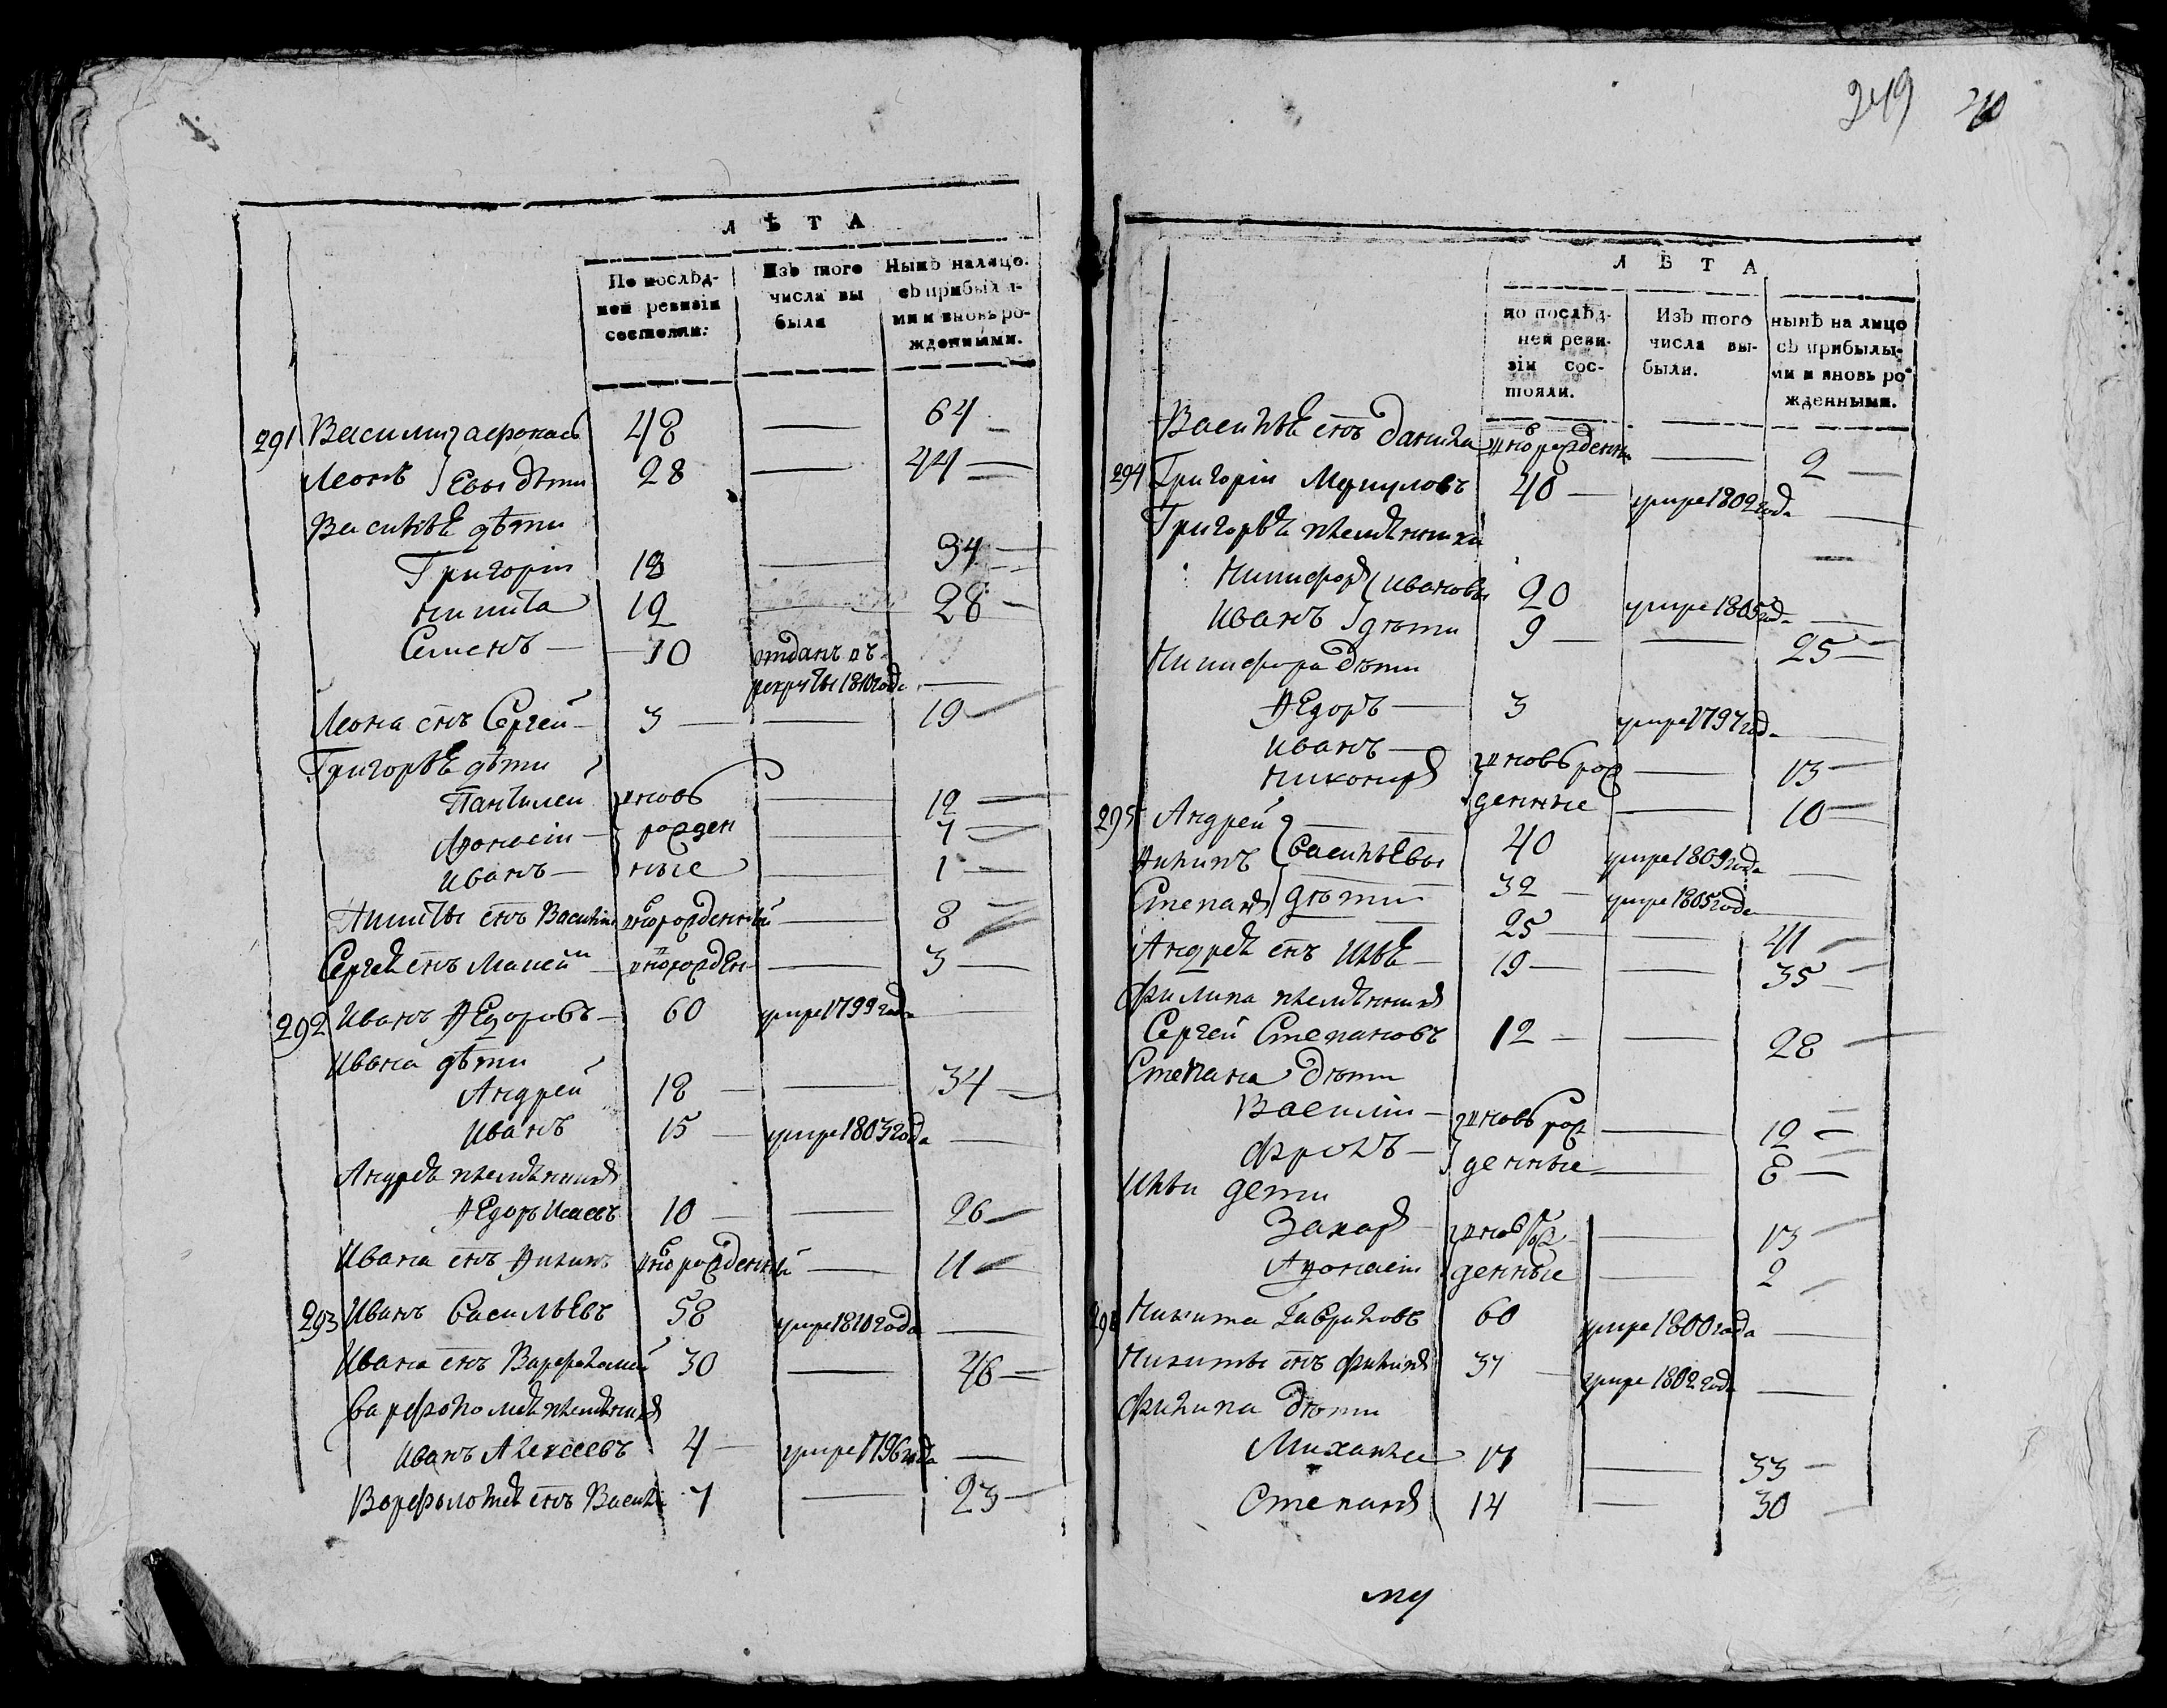 Л Ѣ Т А
По послѣд-
ней ревизіи
состояли.
Изъ того
числа вы
были
Нынѣ налицо.
съ прибылы-
ми и вновь ро-
жденными.
291 Василий Афонась 48 — 64 —
Леонъ евы дѣти 28 — 44 —
Васильѣ дѣти
Григорiй 18 — 34 —
Никита 12 — 28 —
Семенъ — 10 отданъ въ
рекруты 1810 года —
Леона сынъ Сергей — 3 — — 19
Григорьѣ дѣти
Пантилей вновь — 12 —
Афонасiй — рожден — 7 —
Иванъ — ные — 1 —
Никиты сынъ Василий вноворожденный — 8
Сергея сынъ Матвей — вноворожден — 3 —
292 Иванъ Федоровъ — 60 умре 1799 года —
Ивана дѣти
Андрей 18 — — 34 —
Иванъ 15 — умре 1803 года —
Андрея племянникъ
Федоръ Исаевъ 10 — — 26 —
Ивана сынъ Филипъ вноворожденный — 11
293 Иванъ Васильевъ 58 умре 1810 года —
Ивана сынъ Варфоломей 30 — 46 —
Варфоломея племянникъ
Иванъ Алексеевъ 4 — умре 1796 года —
Варфоломея сынъ Василий 7 — 23 —
249
Л Ѣ Т А
по послѣд-
ней реви-
зіи сос-
тояли.
Изъ того
числа вы-
были.
нынѣ на лицо
съ прибылы-
ми и вновь ро-
жденными.
Васильѣ сынъ Данила вноворожденный — 2 —
294 Григорiй Меркуловъ 40 — умре 1802 года —
Григорьѣ племянники
Никифоръ Ивановы 20 умре 1805 года —
Иванъ дѣти 9 — — 25 —
Никифора дѣти
Федоръ — 3 умре 1797 года —
Иванъ — вновь рож — 13 —
Никоноръ денные — 10 —
295 Андрей 40 умре 1809 года —
Филипъ Васильевы 32 — умре 1805 года —
Степанъ дѣти 25 — — 41 —
Андрея сынъ Илья — 19 — — 35 —
Филипа племянникъ
Сергей Степановъ 12 — — 28
Степана дѣти
Василiй — вновь рож — 12 —
Фролъ — денные — 8 —
Ильи дети
Захаръ — вновь рож — 13
Афонасiй денные — 2
Никита Гавриловъ 60 умре 1800 года —
Никиты сынъ Филипъ 37 — умре 1802 года —
Филипа дѣти
Михайла 17 — 33 —
Степанъ 14 — 30 —